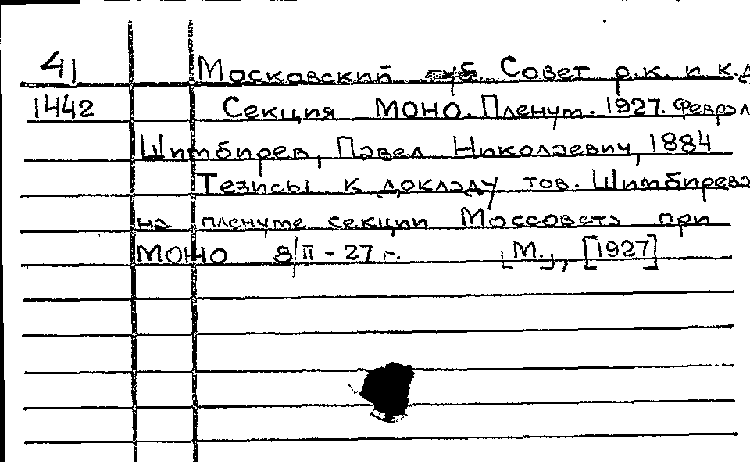 41 Московский губ. Совет р.к. и к.д
1442 Секция МОНО. Пленум. 1927. Феврал
Шимбирев, Павел Николаевич, 1884
Тезисы к докладу тов. Шимбирева
на пленуме секции Моссовета при
МОНО 8/II - 27 г. [М.], [1927]